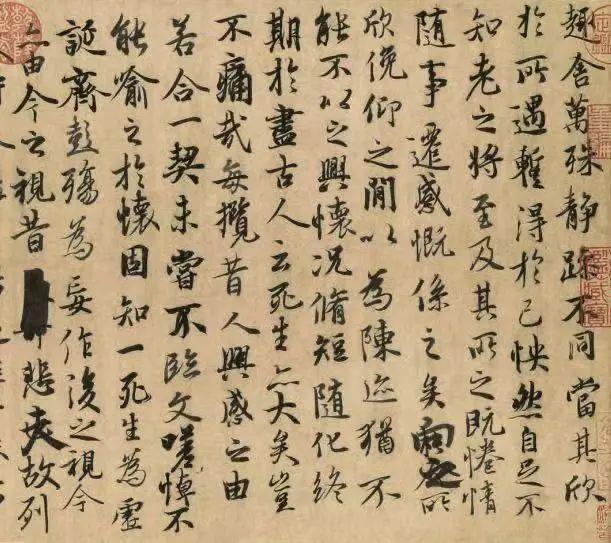 趣舍萬殊静躁不同當其欣
於所遇蹔得於己怏然自足不
知老之將至及其所之既惓情
随事遷感慨係之矣向之所
欣俛仰之閒以為陳迹猶不
能不以之興懷况脩短随化終
期於盡古人云死生亦大矣豈
不痛哉每攬昔人興感之由
若合一契未嘗不臨文嗟悼不
能喻之於懷固知一死生為虚
誕齊彭殤為妄作後之視今
亦由今之視昔悲夫故列